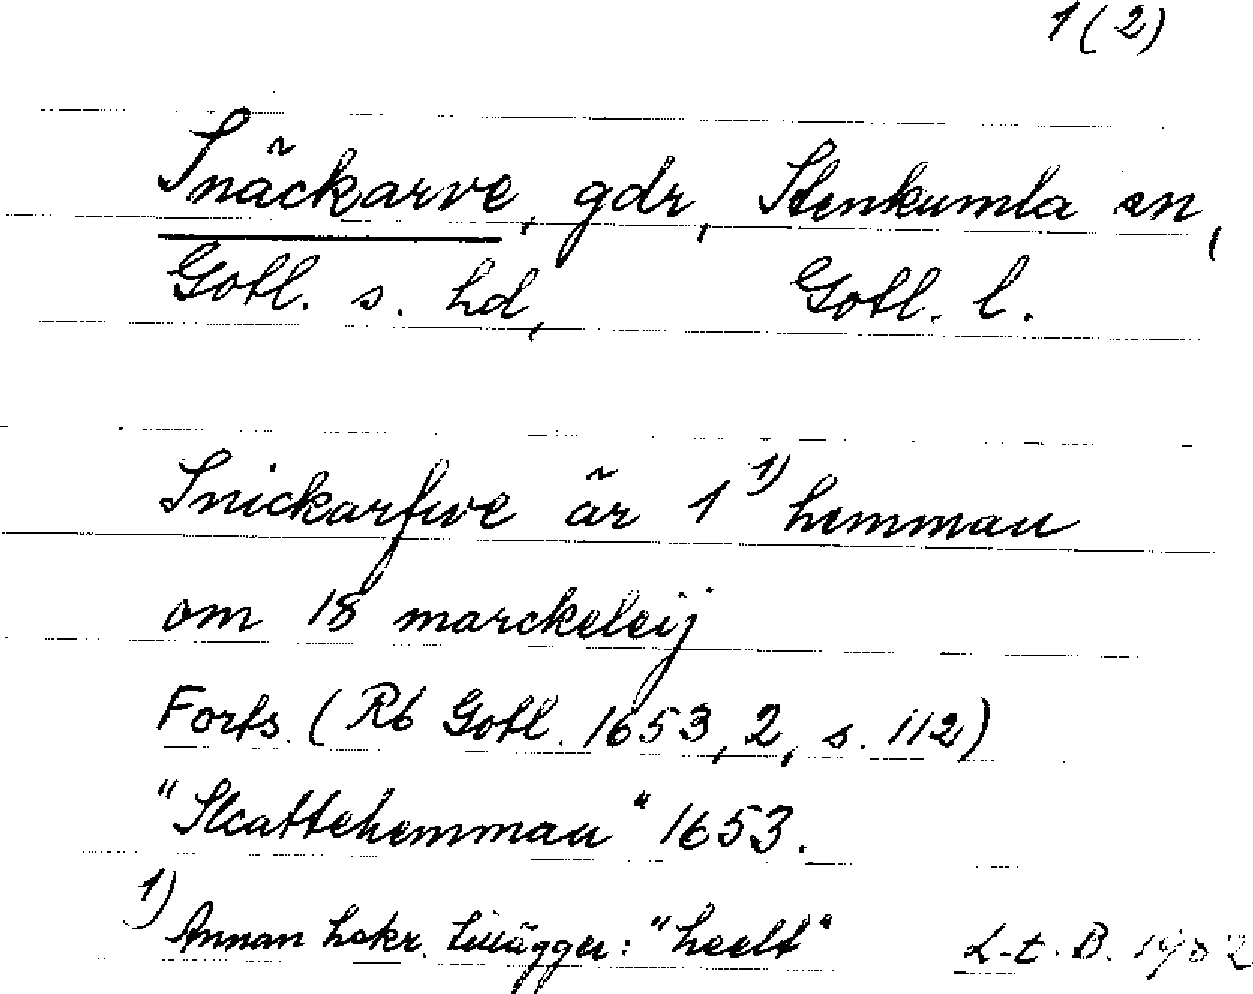 1(2)
Snäckarve, gdr, Stenkumla sn,
Gotl. s. hd, Gotl. l.
Snickarfwe är 1 1) hemman
om 18 marckeleij
Forts. (Rb Gotl. 1653, 2, s. 112)
"Skattehemman" 1653.
1) Annan hskr. tillägger: "heelt" L-t. B. 1982